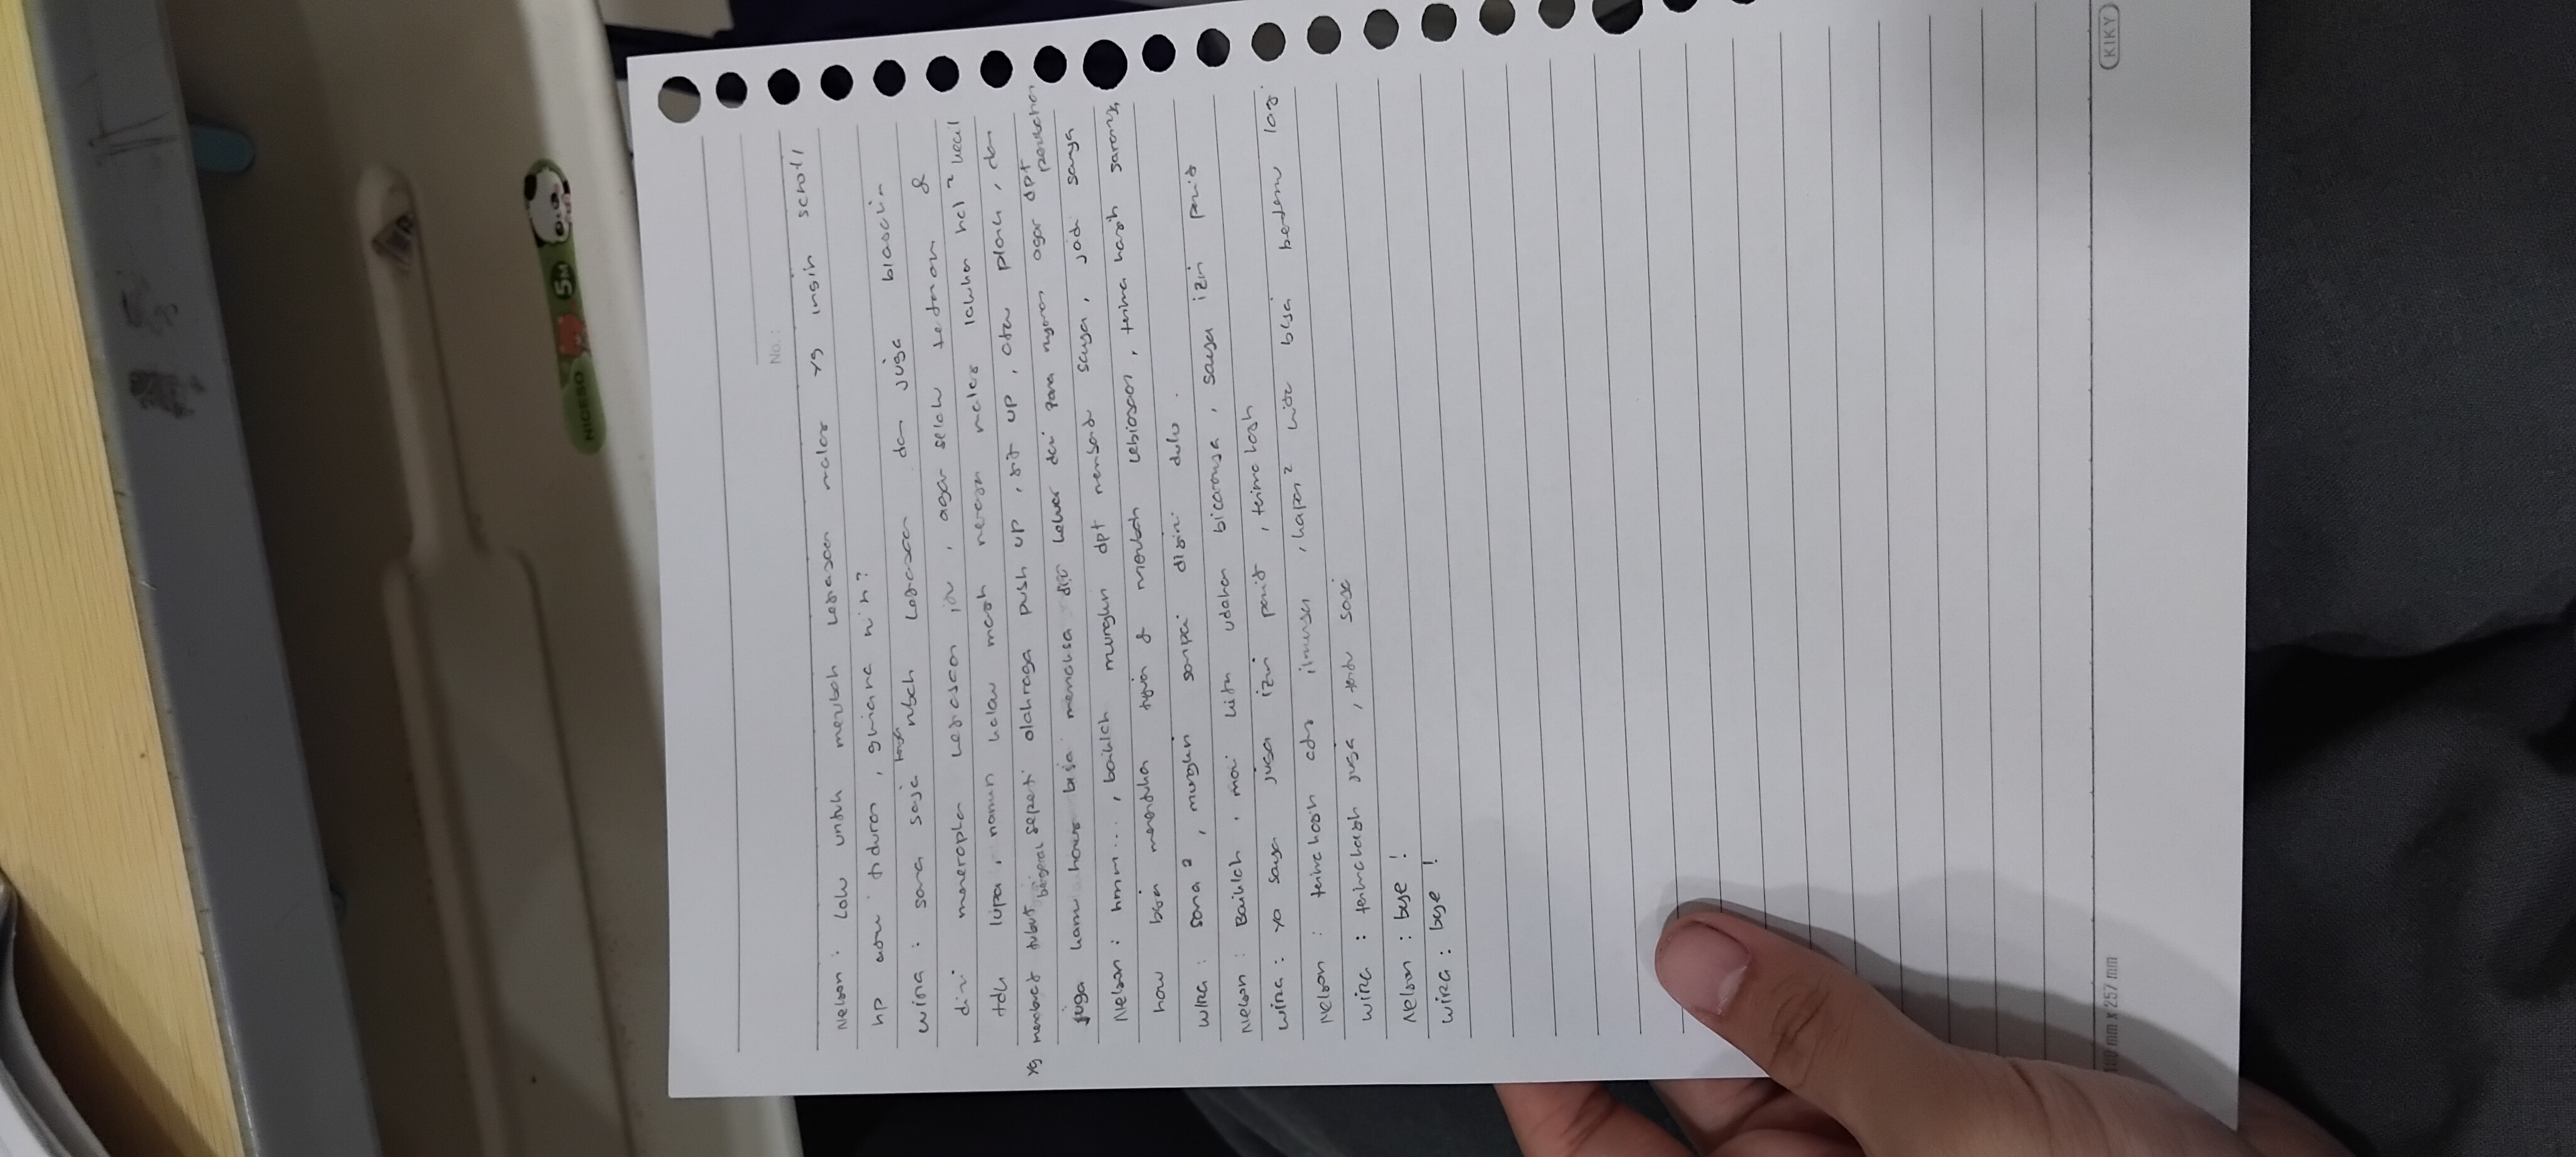 NICESO 5M
No. :
Nelson : Lalu untuk merubah kebiasaan malas yg ingin scroll
hp atau tiduran , gmiana n'h ?
Wira : sama saja harus rubah kebiasaan dan juga biasakin
diri menerapkan kebiasaan itu , agar selalu tertanam &
tdk lupa , namun kalau masih merasa malas lakukan hal ² kecil
yg membuat tubuh bergerak seperti olahraga push up , sit up , atau plank , dan
juga kamu harus bisa memaksa diri keluar dari zona nyaman agar dpt perubahan
Nelson : hmm... , baiklah mungkin dpt membantu saya , jadi saya
harus bisa menentukan tujuan & merubah kebiasaan , terima kasih sarannya
Wira : sama ² , mungkin sampai disini dulu .
Nelson : Baiklah , mari kita udahan bicaranya , saya izin pamit
Wira : ya saya juga izin pamit , terima kasih
Nelson : terima kasih atas ilmunya , kapan ² kita bisa bertemu lagi
Wira : terima kasih juga , tentu saja
Nelson : bye !
Wira : bye !
mm x 257 mm
KIKY